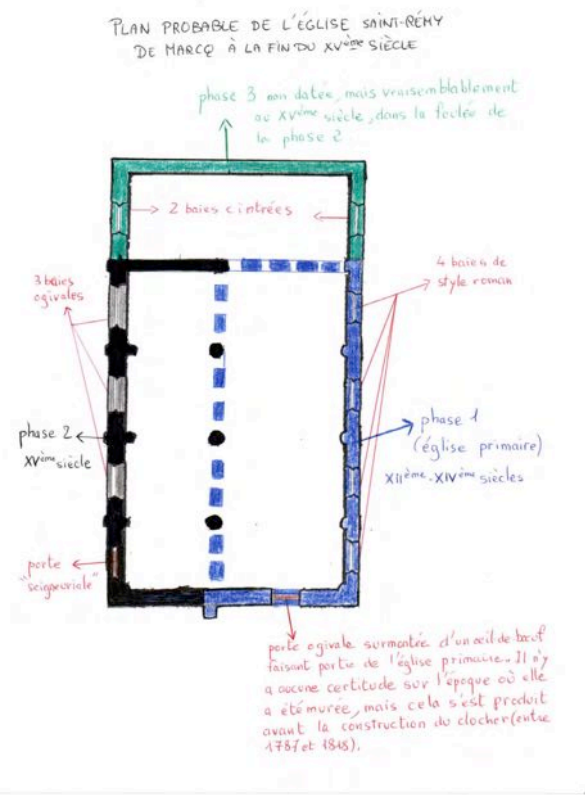 PLAN PROBABLE DE L'ÉGLISE SAINT-RÉMY
DE MARCQ À LA FIN DU XVème SIÈCLE
phase 3 non datée, mais vraisemblablement
au XVème siècle, dans la foulée de
la phase 2
2 baies cintrées
3 baies
ogivales
4 baies de
style roman
phase 2
XVème siècle
phase 1
(église primaire)
XIIème-XIVème siècles
porte
"seigneuriale"
porte ogivale surmontée d'un œil de bœuf
faisant partie de l'église primaire. Il n'y
a aucune certitude sur l'époque où elle
a été murée, mais cela s'est produit
avant la construction du clocher (entre
1787 et 1818).